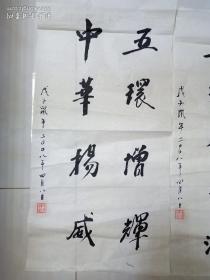 五環增輝
中華揚威
戊子鼠年二〇〇八年四月八日
戊子鼠年二〇〇八年四月八日